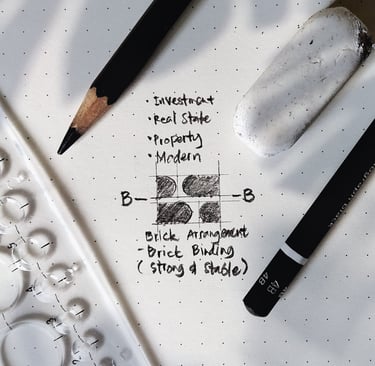 · Investment
· Real State
· Property
· Modern
B — — B
Brick Arrangement
- Brick Binding
( Strong & Stable)
4B